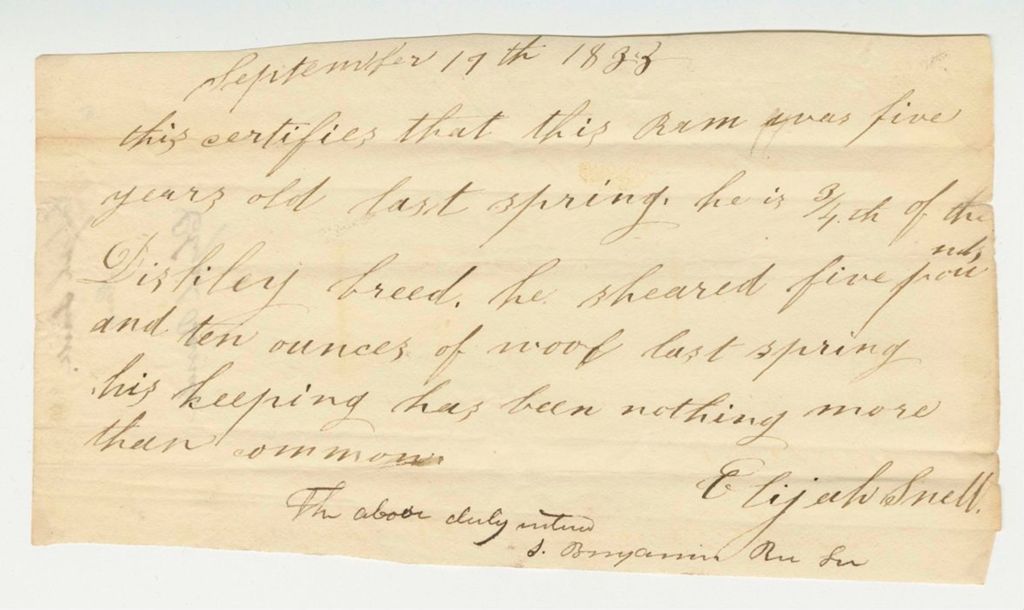 September 17th 1833
this certifies that this Ram was five
years old last spring. he is 3/4th of the
Dishley breed. he sheared five pounds
and ten ounces of wool last spring
his keeping has been nothing more
than common.
Elijah Snell.
The above duly
S. Benjamin